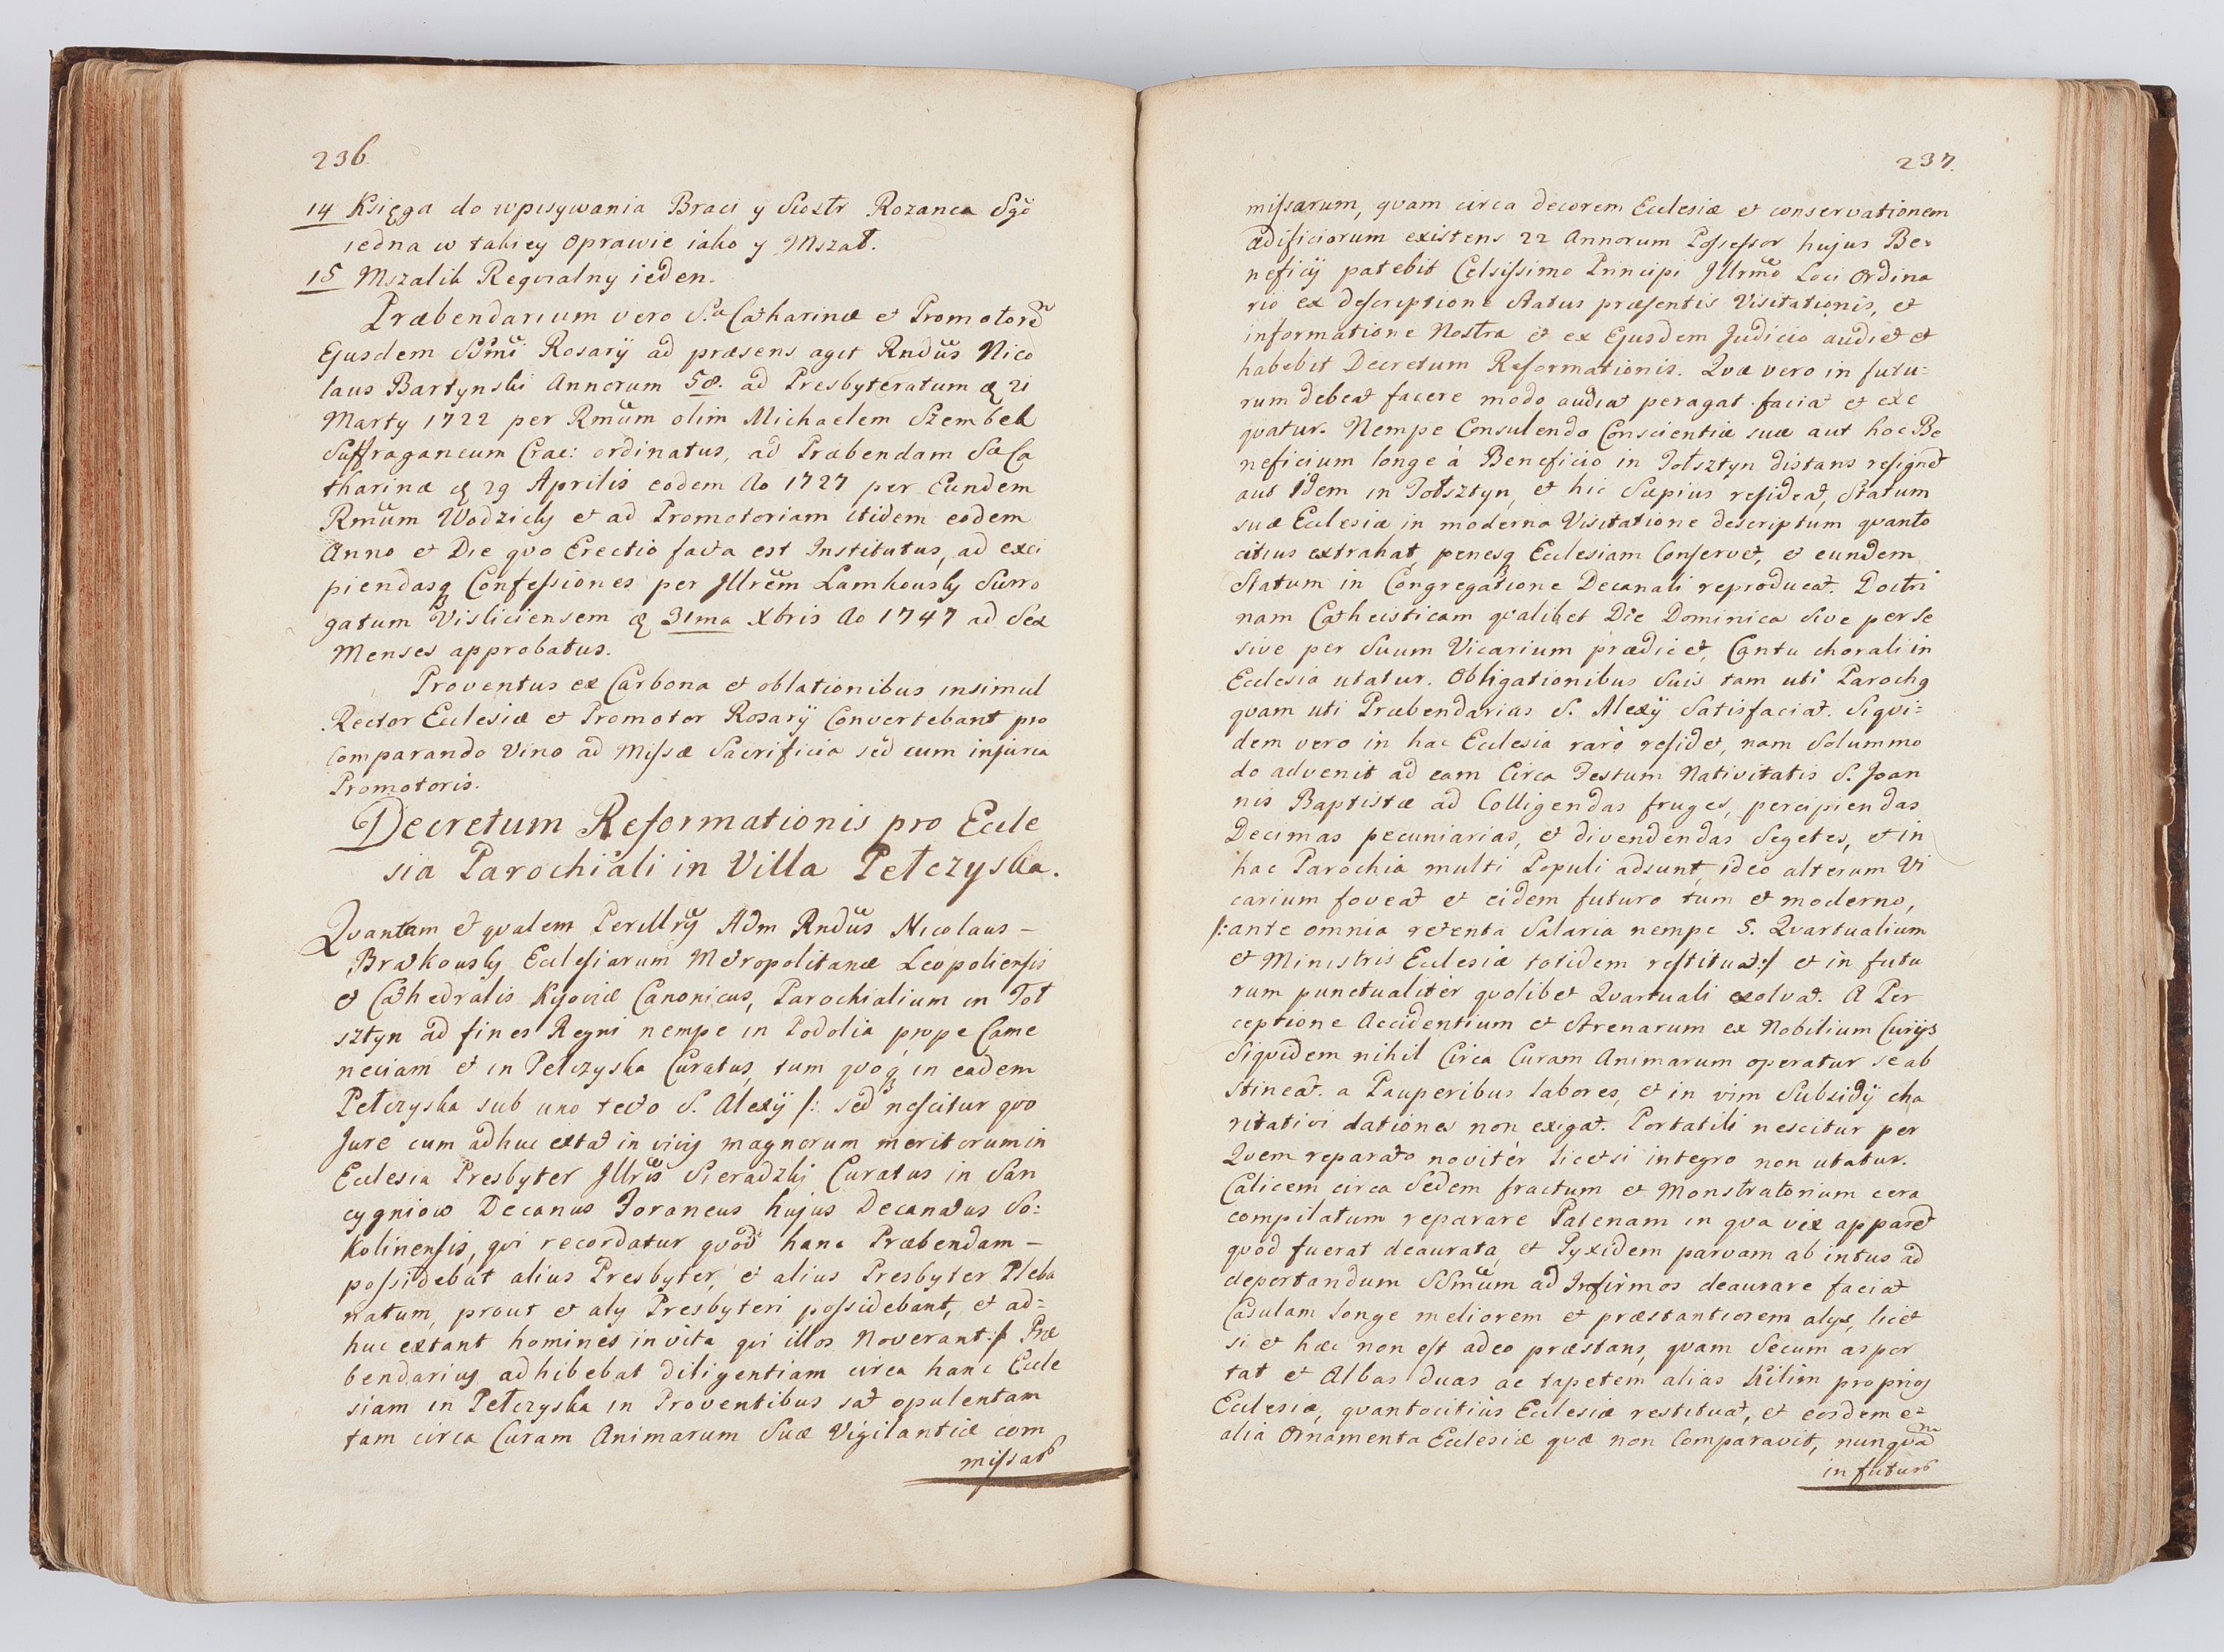 236
14 Księga do wpisywania Braci y Siostr Rozanca Sgo
iedna w takiey Oprawie iako y Mszał.
15 Mszalik Requialny ieden.
Præbendarium vero S.æ Catharinæ et Promotorẽ
Ejusdem SSmi Rosarÿ ad præsens agit Rndus Nico
laus Bartynski Annorum 58. ad Presbyteratum 21
Marty 1722 per Rmum olim Michaelem Szembek
Suffraganeum Crac: ordinatus, ad Præbendam Sæ Ca
tharinæ 29 Aprilis eodem Ao 1727 per Eundem
Rmum Wodzicky et ad Promotoriam itidem eodem
Anno et Die quo Erectio facta est Institutus, ad exci
piendasq Confessiones per Jllrem Lamkousky Surro
gatum Visliciensem 31ma Xbris Ao 1747 ad Sex
Menses approbatus.
Proventus ex Carbona et oblationibus insimul
Rector Ecclesiæ et Promotor Rosarÿ Convertebant pro
comparando Vino ad Missæ Sacrificia sed cum injuria
Promotoris.
Decretum Reformationis pro Eccle
sia Parochiali in Villa Pełczyska.
Quantam et qualem Perillris Adm Rndus Nicolaus –
Bratkousky Ecclesiarum Metropolitanæ Leopoliensis
et Cathedralis Kyoviæ Canonicus, Parochialium in Toł
sztyn ad fines Regni nempe in Podolia prope Came
neciam et in Pelczyska Curatus, tum quoq in eadem
Pełczyska sub uno tecto S. Alexÿ /: sed nescitur quo
Jure cum adhuc extat in vivis magnorum meritorum in
Ecclesia Presbyter Jllris Sieradzki Curatus in San
cygniow Decanus Foraneus hujus Decanatus So:
kolinensis, qui recordatur quod hanc Præbendam –
possidebat alius Presbyter, et alius Presbyter Pleba
natum, prout et aly Presbyteri possidebant, et ad=
huc extant homines in vita qui illos Noverant :/ Præ
bendarius adhibebat diligentiam circa hanc Eccle
siam in Pełczyska in Proventibus sat opulentam
tam circa Curam Animarum Suæ Vigilantiæ com
missar
237.
missarum, quam circa decorem Ecclesiæ et conservationem
ædificiorum existens 22 Annorum Possessor hujus Be=
neficÿ patebit Celsissimo Principi Jllrmo Loci Ordina
rio ex descriptione Status præsentis Visitationis, et
informatione Nostra et ex Ejusdem Judicio audiet et
habebit Decretum Reformationis. Quæ vero in futu=
rum debeat facere modo audiat peragat faciat et exe
quatur. Nempe Consulendo Conscientiæ suæ aut hoc Be
neficium longe à Beneficio in Tołsztyn distans resignet
aut Idem in Tołsztyn, et hic Sæpius resideat, Statum
suæ Ecclesiæ in moderna Visitatione descriptum quanto
citius extrahat, penesq Ecclesiam Conservet, et eundem
Statum in Congregatione Decanali reproducat. Doctri
nam Catheisticam qualibet Die Dominica Sive per se
sive per Suum Vicarium prædicet, Cantu chorali in
Ecclesia utatur. Obligationibus Suis tam uti Parochq
quam uti Præbendarius S. Alexÿ Satisfaciat. Siqui=
dem vero in hac Ecclesia rarò residet, nam Solummo
do advenit ad eam Circa Festum Nativitatis S. Joan
nis Baptistæ ad Colligendas fruges, percipiendas
Decimas pecuniarias, et divendendas Segetes, et in
hac Parochia multi Populi adsunt, ideo alterum Vi
carium foveat et eidem futuro tum et moderno,
/: ante omnia retenta Salaria nempe 5. Quartualium
et Ministris Ecclesiæ totidem restituat :/ et in futu
rum punctualitèr quolibet Quartuali exolvat. A Per
ceptione Accidentium et Strenarum ex Nobilium Curÿs
Siquidem nihil Circa Curam Animarum operatur se ab
stineat. a Pauperibus labores, et in vim Subsidÿ cha
ritativi dationes non exigat. Portatili nescitur per
Quem reparato novitèr licetsi integro non utatur.
Calicem circa Sedem fractum et Monstratorium cera
compilatum reparare Patenam in qua vix apparet
quod fuerat deaurata, et Pyxidem parvam ab intus ad
deportandum SSmum ad Infirmos deaurare faciat
Casulam longe meliorem et præstantiorem alys, licet
si et hæc non est adeo præstans, quam Secum aspor
tat et Albas duas ac tapetem alias Kilim proprios
Ecclesiæ, quantocitius Ecclesiæ restituat, et eosdem et
alia Ornamenta Ecclesiæ quæ non Comparavit, nunquã
in futur